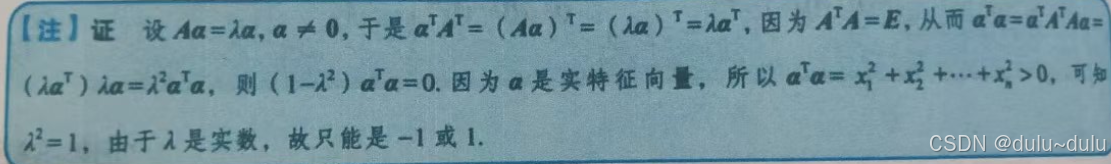 【注】证 设 Aα=λα, α≠0, 于是 αᵀAᵀ=(Aα)ᵀ=(λα)ᵀ=λαᵀ, 因为 AᵀA=E, 从而 αᵀα=αᵀAᵀAα=
(λαᵀ)λα=λ²αᵀα, 则 (1-λ²)αᵀα=0. 因为 α 是实特征向量, 所以 αᵀα=x₁²+x₂²+⋯+xₙ²>0, 可知
λ²=1, 由于 λ 是实数, 故只能是 -1 或 1.
CSDN @dulu~dulu